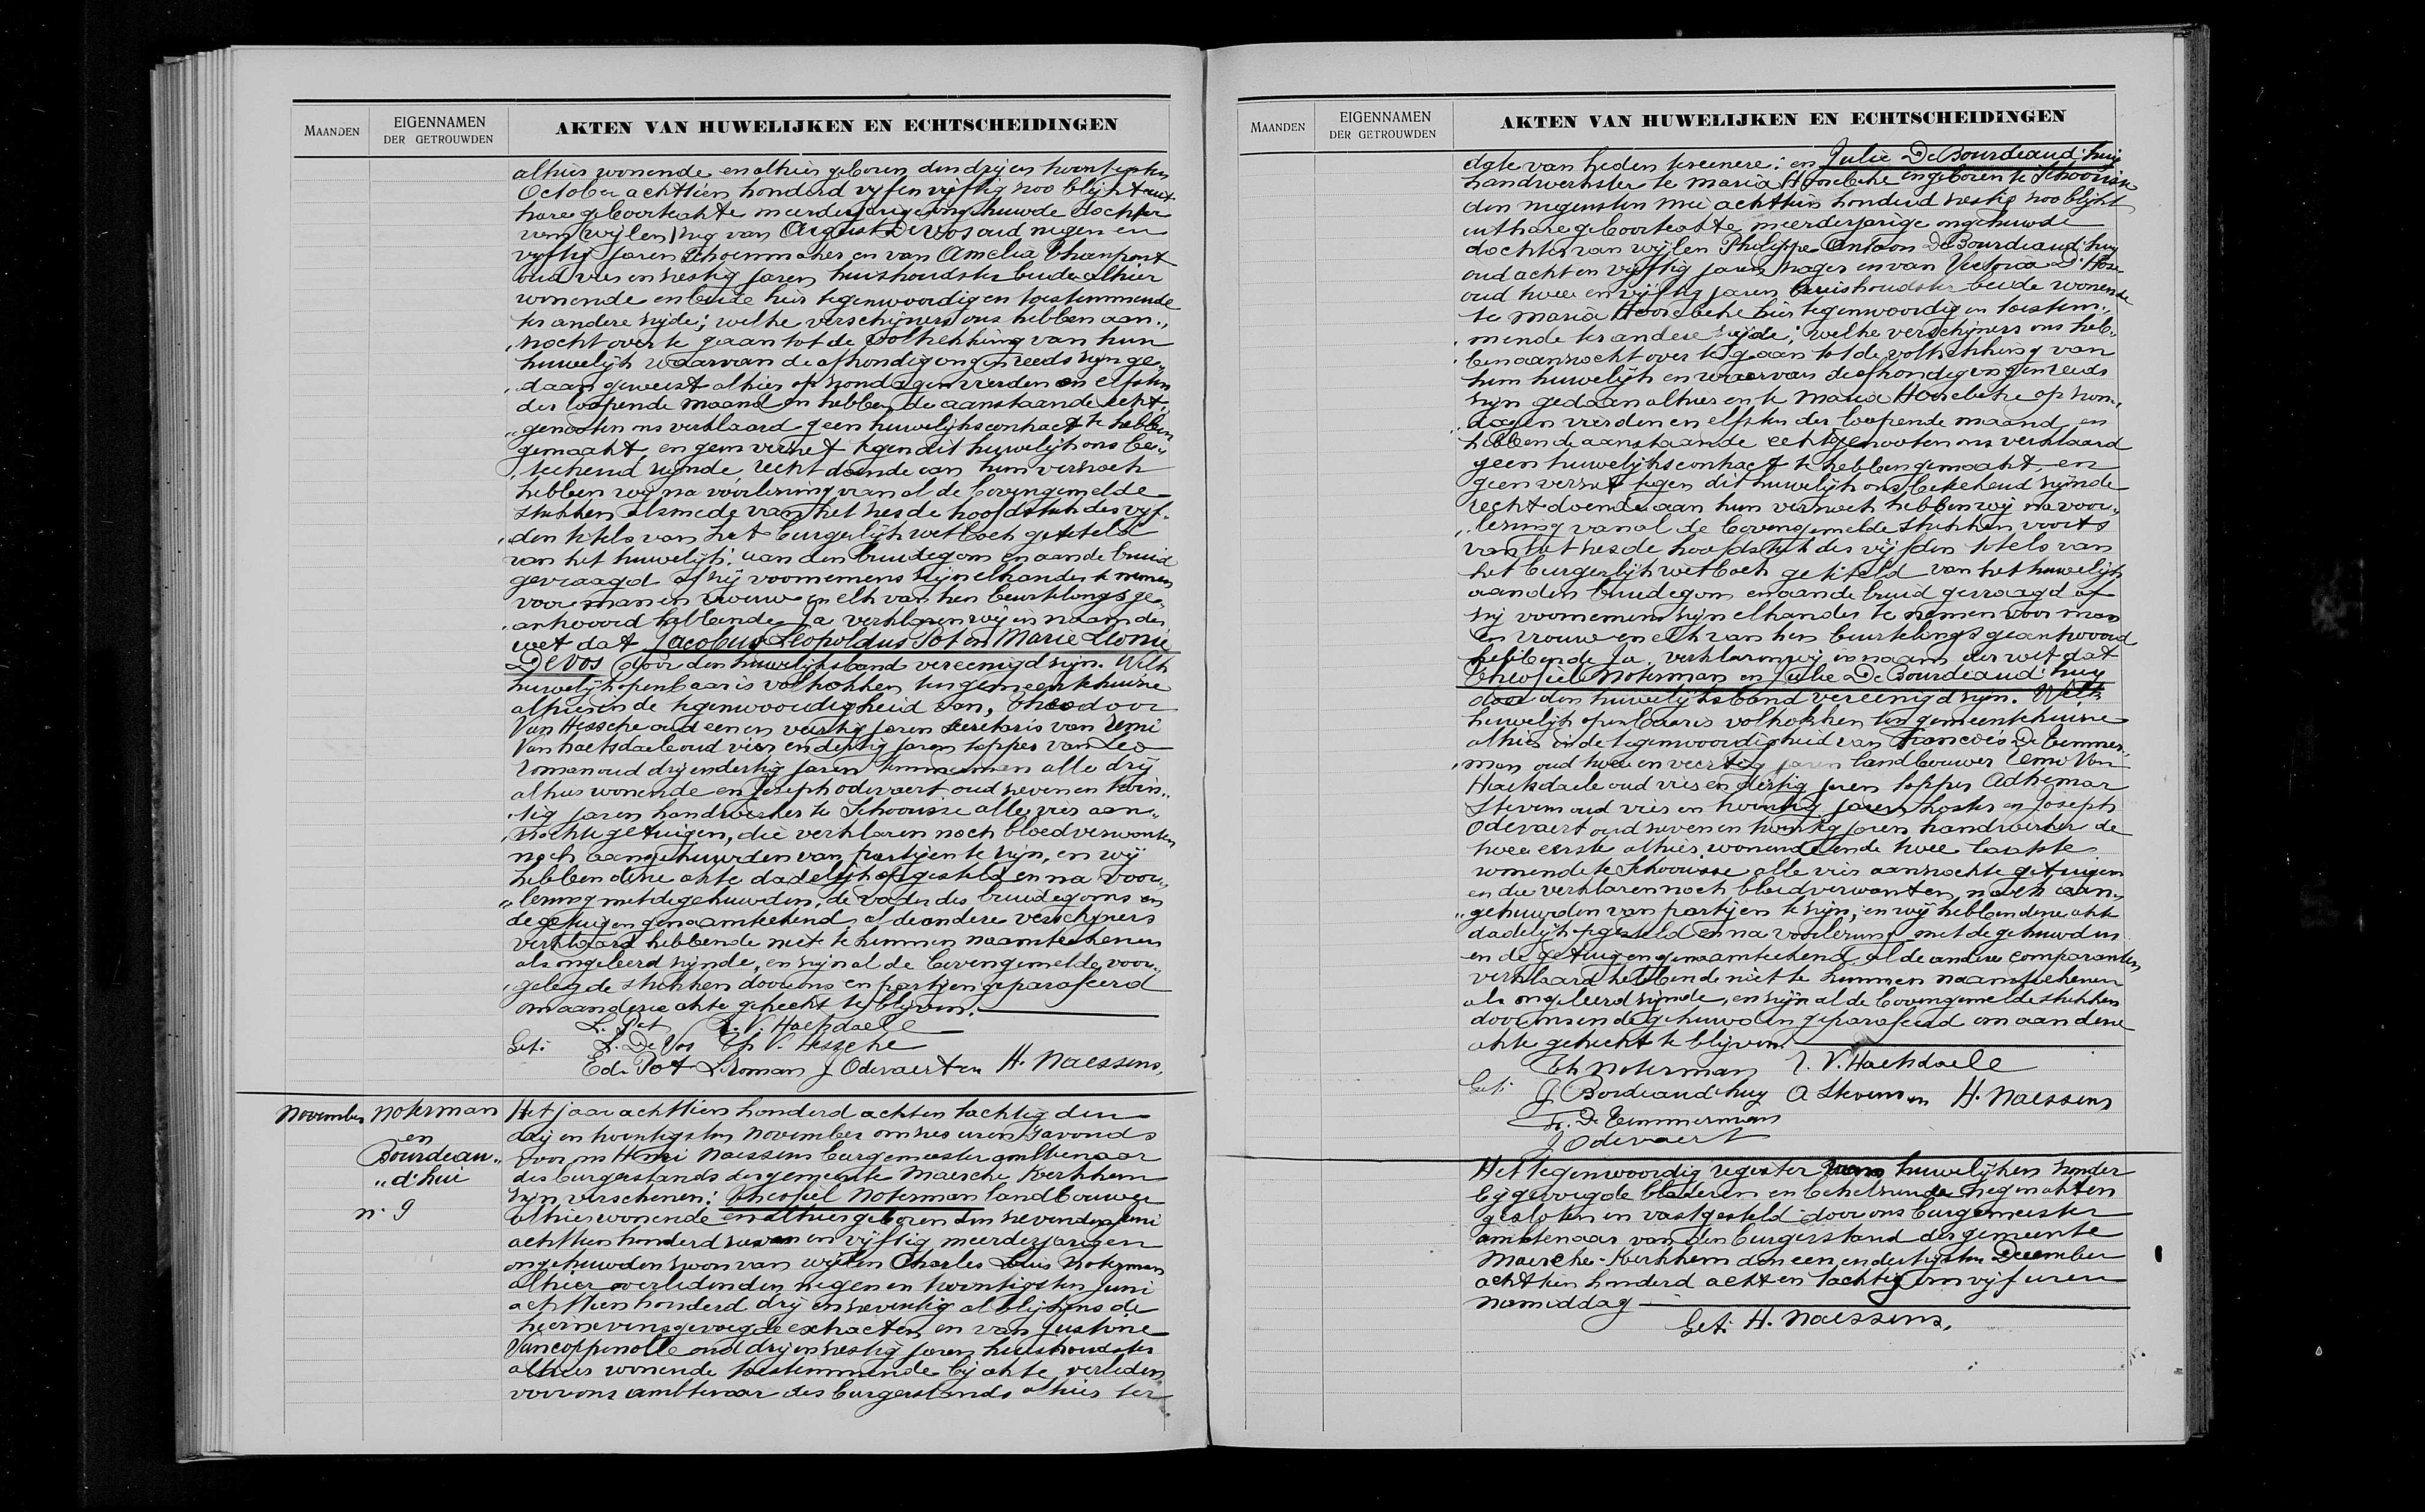 MAANDEN
EIGENNAMEN
DER GETROUWDEN
AKTEN VAN HUWELIJKEN EN ECHTSCHEIDINGEN
alhier wonende en alhier geboren den drij en twintigsten
October achttien honderd vijf en vijftig zoo blijkt uit
hare geboorteakte meerderjarige ongehuwde dochter
van August De Vos oud negen en
vijftig jaren schoenmaker en van Amelia Thanpont
oud vier en zestig jaren huishoudster beide alhier
wonende en beide hier tegenwoordig en toestemmende
ter andere zijde; welke verschijners ons hebben aan„
„zocht over te gaan tot de voltrekking van hun
huwelijk waarvan de afkondigingen reeds zijn ge„
„daan geweest alhier op zondagen vierden en elfsten
der loopende maand en hebben de aanstaande echt„
„genooten ons verklaard geen huwelijkscontract te hebben
gemaakt, en geen verzet tegen dit huwelijk ons be„
„teekend zijnde, recht doende aan hun verzoek
hebben wij na voorlezing van al de bovengemelde
stukken alsmede van het zesde hoofdstuk des vijf„
„den titels van het burgerlijk wetboek getiteld
van het huwelijk: aan den bruidegom en aan de bruid
gevraagd of zij voornemens zijn elkander te nemen
voor man en vrouw en elk van hen beurtelings ge„
„antwoord hebbende Ja verklaren wij in naam der
wet dat Jacobus Leopoldus Pot en Marie Leonie
De Vos door den huwelijksband vereenigd zijn. Welk
huwelijk openbaar is voltrokken ten gemeentehuize
alhier in de tegenwoordigheid van, Theodoor
Van Hessche oud een en veertig jaren secretaris van Remi
Van Haeksdaele oud vier en dertig jaren tapper van Leo
Roman oud drij en dertig jaren timmerman alle drij
alhier wonende en Joseph Odevaert oud zeven en twin„
„tig jaren handwerker te Schoorisse alle vier aan„
„zochte getuigen, die verklaren noch bloedverwanten
noch aangehuwden van partijen te zijn, en wij
hebben deze akte dadelijk opgesteld en na voor„
„lezing met de gehuwden, de vader des bruidegoms en
de getuigen genaamteekend, al de andere verschijners
verklaard hebbende niet te kunnen naamteekenen
als ongeleerd zijnde, en zijn al de bovengemelde voor„
„gelegde stukken door ons en partijen geparafeerd
om aan deze akte gehecht te blijven.
L. Pot R. V. Haeksdaele
Get: L. De Vos Th V. Hessche
Ed. Pot L Roman J Odevaert en H. Naessens,
November
Noterman
en
Bourdeau„
„d'hui
n. 9
Het jaar achttien honderd acht en tachtig den
drij en twintigsten November om zes uren s'avonds
voor ons Henri Naessens burgemeester ambtenaar
des burgerstands der gemeente Maercke Kerkhem
zijn verschenen: Theofiel Noterman landbouwer
alhier wonende en alhier geboren den zevenden Juni
achttien honderd zeven en vijftig meerderjarigen
ongehuwden zoon van wijlen Charles Louis Noterman
alhier overleden den negen en twintigsten Juni
achttien honderd drij en zeventig al blijkens de
hiernevensgevoegde extracten en van Justine
Vancoppenolle oud drij en zestig jaren huishoudster
alhier wonende toestemmende bij akte verleden
voor ons ambtenaar des burgerstands alhier ter
MAANDEN
EIGENNAMEN
DER GETROUWDEN
AKTEN VAN HUWELIJKEN EN ECHTSCHEIDINGEN
date van heden te eenere: en Julie De Bourdeaud'huy
handwerkster te Maria Hoorebeke en geboren te Schoorisse
den negensten mei achttien honderd zestig zoo blijkt
uit hare geboorteakte meerderjarige ongehuwde
dochter van wijlen Philippe Antoon De Bourdeaud'huy
oud acht en vijftig jaren zager en van Victoria D'Hose
oud twee en vijftig jaren huishoudster beide wonende
te Maria Hoorebeke hier tegenwoordig en toestem„
„mende ter andere zijde; welke verschijners ons heb„
„ben aanzocht over te gaan tot de voltrekking van
hun huwelijk en waarvan de afkondigingen reeds
zijn gedaan alhier en te Maria Hoorebeke op zon„
„dagen vierden en elfsten der loopende maand, en
hebben de aanstaande echtgenooten ons verklaard
geen huwelijkscontract te hebben gemaakt, en
geen verzet tegen dit huwelijk ons beteekend zijnde
recht doende aan hun verzoek hebben wij na voor„
„lezing van al de bovengemelde stukken voorts
van het zesde hoofdstuk des vijfden titels van
het burgerlijk wetboek getiteld van het huwelijk
aan den bruidegom en aan de bruid gevraagd of
zij voornemens zijn elkander te nemen voor man
en vrouw en elk van hen beurtelings geantwoord
hebbende Ja, verklaren wij in naam der wet dat
Theofiel Noterman en Julie De Bourdeaud'huy
door den huwelijksband vereenigd zijn. Welk
huwelijk openbaar is voltrokken ten gemeentehuize
alhier in de tegenwoordigheid van Francois De Temmer„
„man oud twee en veertig jaren landbouwer Remi Van
Haeksdaele oud vier en dertig jaren tapper Adhemar
Stevens oud vier en twintig jaren koster en Joseph
Odevaert oud zeven en twintig jaren handwerker de
twee eerste alhier wonende en de twee laatste
wonende te Schoorisse alle vier aanzochte getuigen
en die verklaren noch bloedverwanten noch aan„
„gehuwden van partijen te zijn, en wij hebben deze akte
dadelijk opgesteld en na voorlezing met de gehuwden
en de getuigen genaamteekend al de andere comparanten
verklaard hebbende niet te kunnen naamteekenen
als ongeleerd zijnde, en zijn al de bovengemelde stukken
door ons en de gehuwden geparafeerd om aan deze
akte gehecht te blijven.
Th Noterman R. V. Haeksdaele
Get: J Bordeaudhuy A Stevens en H. Naessens
Fr. De Temmerman
J Odevaert
Het tegenwoordig register van huwelijken zonder
bijgevoegde bladeren en behelzende negen akten
gesloten en vastgesteld door ons burgemeester
ambtenaar van den burgerstand der gemeente
Maercke-Kerkhem den een en dertigsten December
achttien honderd acht en tachtig om vijf uren
namiddag
Get: H. Naessens,